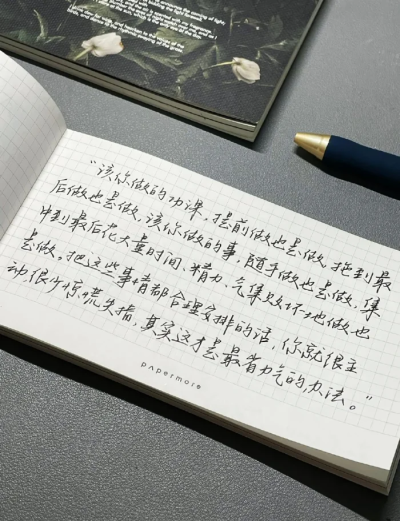 "该你做的功课,提前做也是做,拖到最
后做也是做。该你做的事,随手做也是做,集
中到最后花大量时间、精力、气集败坏地做也
是做。把这些事情都合理安排的话,你就很主
动,很少惊慌失措,其实这才是最省力气的办法。"
papermore